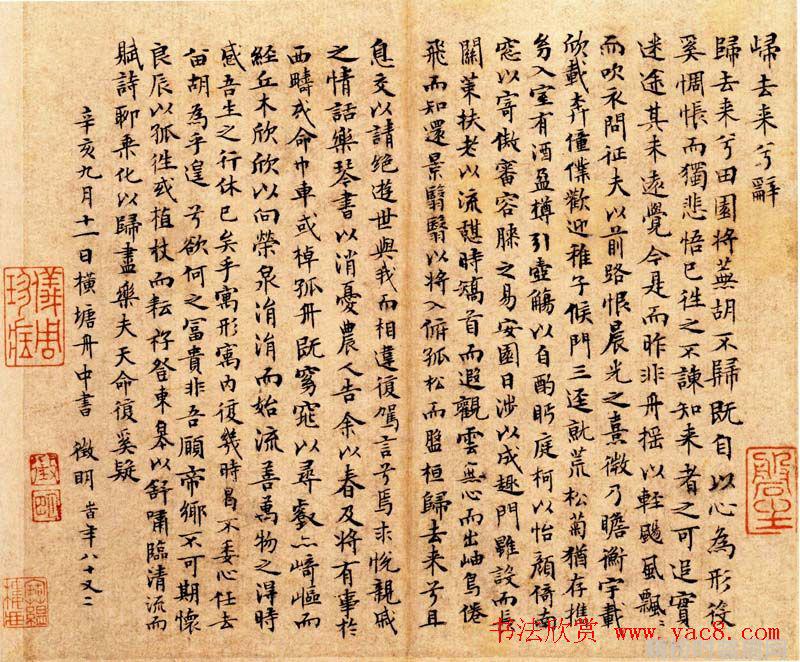 歸去来兮辭
歸去来兮田園将蕪胡不歸既自以心為形役
奚惆悵而獨悲悟已往之不諫知来者之可追實
迷途其未遠覺今是而昨非舟摇以輕颺風飄〻
而吹衣問征夫以前路恨晨光之熹微乃瞻衡宇載
欣載奔僮僕歡迎稚子候門三逕就荒松菊猶存攜
幼入室有酒盈樽引壺觴以自酌眄庭柯以怡顏倚南
窓以寄傲審容膝之易安園日涉以成趣門雖設而長
關策扶老以流憩時矯首而遐觀雲無心而出岫鳥倦
飛而知還景翳翳以将入孤松而盤桓歸去来兮且
息交以請絶逰世與我而相違復駕言兮焉求悦親戚
之情話樂琴書以消憂農人告余以春及将有事於
西疇或命巾車或棹孤舟既窈窕以尋壑亦崎嶇而
經丘木欣欣以向榮泉涓涓而始流善萬物之得時
感吾生之行休已矣乎寓形寓内復幾時曷不委心任去
留胡為乎遑兮欲何之富貴非吾願帝鄉不可期懷
良辰以孤徃或植杖而耘籽登東臯以舒嘯臨清流而
賦詩聊乘化以歸盡樂夫天命復奚疑
辛亥九月十一日橫塘舟中書 徵明 旹年八十又二
書法欣赏 www.yac8.com